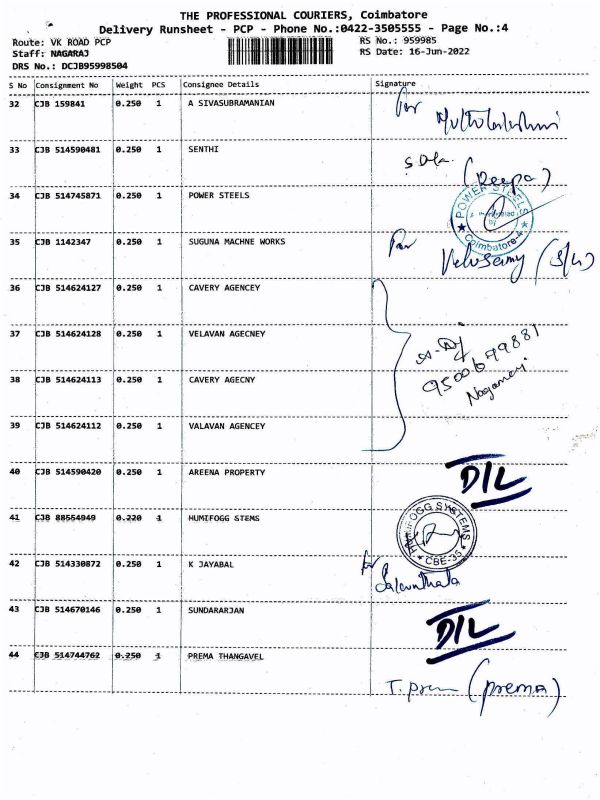 THE PROFESSIONAL COURIERS, Coimbatore
Delivery Runsheet - PCP - Phone No.:0422-3505555 - Page No.:4
Route: VK ROAD PCP RS No.: 959985
Staff: NAGARAJ RS Date: 16-Jun-2022
DRS No.: DCJB95998504
S No Consignment No Weight PCS Consignee Details Signature
32 CJB 159841 0.250 1 A SIVASUBRAMANIAN
For
Muthulakshmi
33 CJB 514590481 0.250 1 SENTHI
(Deepa)
34 CJB 514745871 0.250 1 POWER STEELS
POWER STEELS
Coimbatore-4
35 CJB 1142347 0.250 1 SUGUNA MACHNE WORKS
For
Velusamy (S/W)
36 CJB 514624127 0.250 1 CAVERY AGENCEY
37 CJB 514624128 0.250 1 VELAVAN AGECNEY
9500679881
38 CJB 514624113 0.250 1 CAVERY AGECNY
39 CJB 514624112 0.250 1 VALAVAN AGENCEY
40 CJB 514590420 0.250 1 AREENA PROPERTY
D/L
41 CJB 88554949 0.220 1 HUMIFOGG STEMS
HUMIFOGG SYSTEMS
CBE-35
42 CJB 514330872 0.250 1 K JAYABAL
for
43 CJB 514670146 0.250 1 SUNDARARJAN
D/L
44 CJB 514744762 0.250 1 PREMA THANGAVEL
T. Prem (prema)